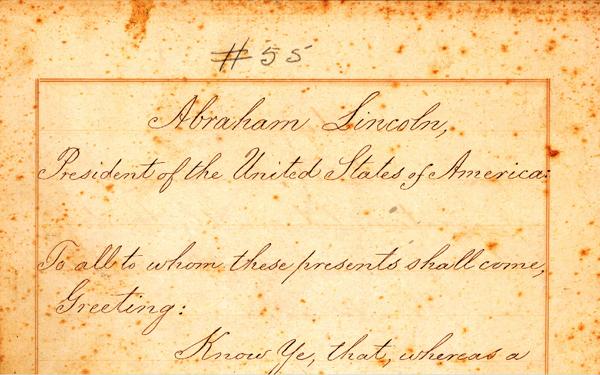 #55
Abraham Lincoln,
President of the United States of America:
To all to whom these presents shall come,
Greeting:
Know Ye, that, whereas a